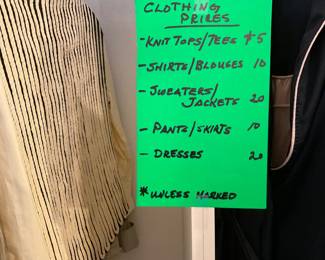 CLOTHING
PRICES
- KNIT TOPS/TEES $5
- SHIRTS/BLOUSES 10
- SWEATERS/
JACKETS 20
- PANTS/SKIRTS 10
- DRESSES 20
* UNLESS MARKED